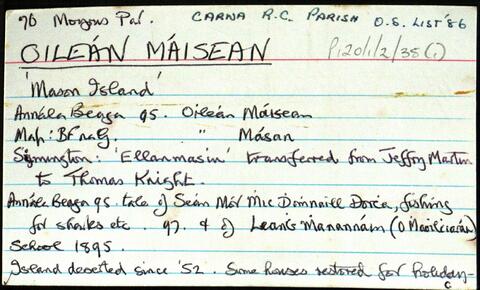 96 Morgons Par. CARNA R.C. PARISH O.S. LIST '86
OILEÁN MÁISEAN P120/1/2/35(1)
'Mason Island'
Annála Beaga 95. Oileán Máisean
Map: BF na G. " Másan
Symington: 'Ellanmasin' transferred from Jeffry Martin
to Thomas Knight.
Annála Beaga 95 tale of Seán Mór Mic Domnaill Dorca, fishing
for sharks etc. 97. & of Manannám (O Maoilciaráin)
School 1895.
Island deserted since '52. Some houses restored for holiday-